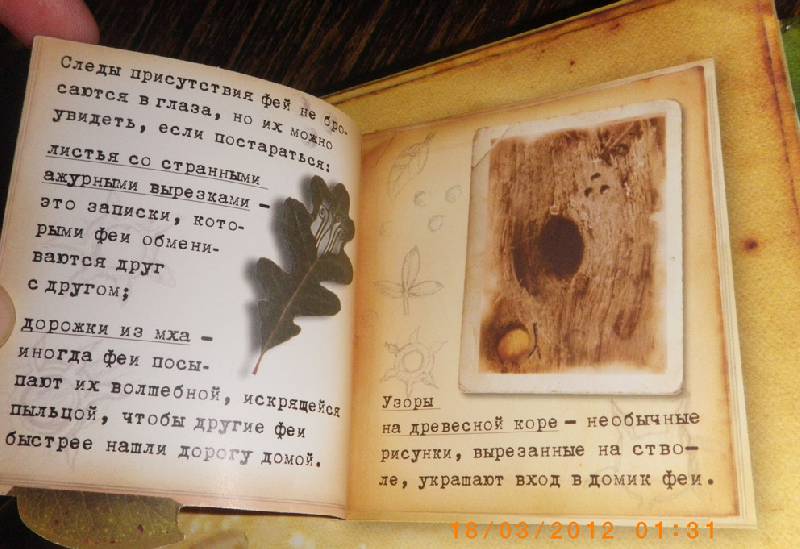 Следы присутствия фей не бро-
саются в глаза, но их можно
увидеть, если постараться:
листья со странными
ажурными вырезками –
это записки, кото-
рыми феи обмени-
ваются друг
с другом;
дорожки из мха –
иногда феи посы-
пают их волшебной, искрящейся
пыльцой, чтобы другие феи
быстрее нашли дорогу домой.
Узоры
на древесной коре – необычные
рисунки, вырезанные на ство-
ле, украшают вход в домик феи.
18/03/2012 01:31